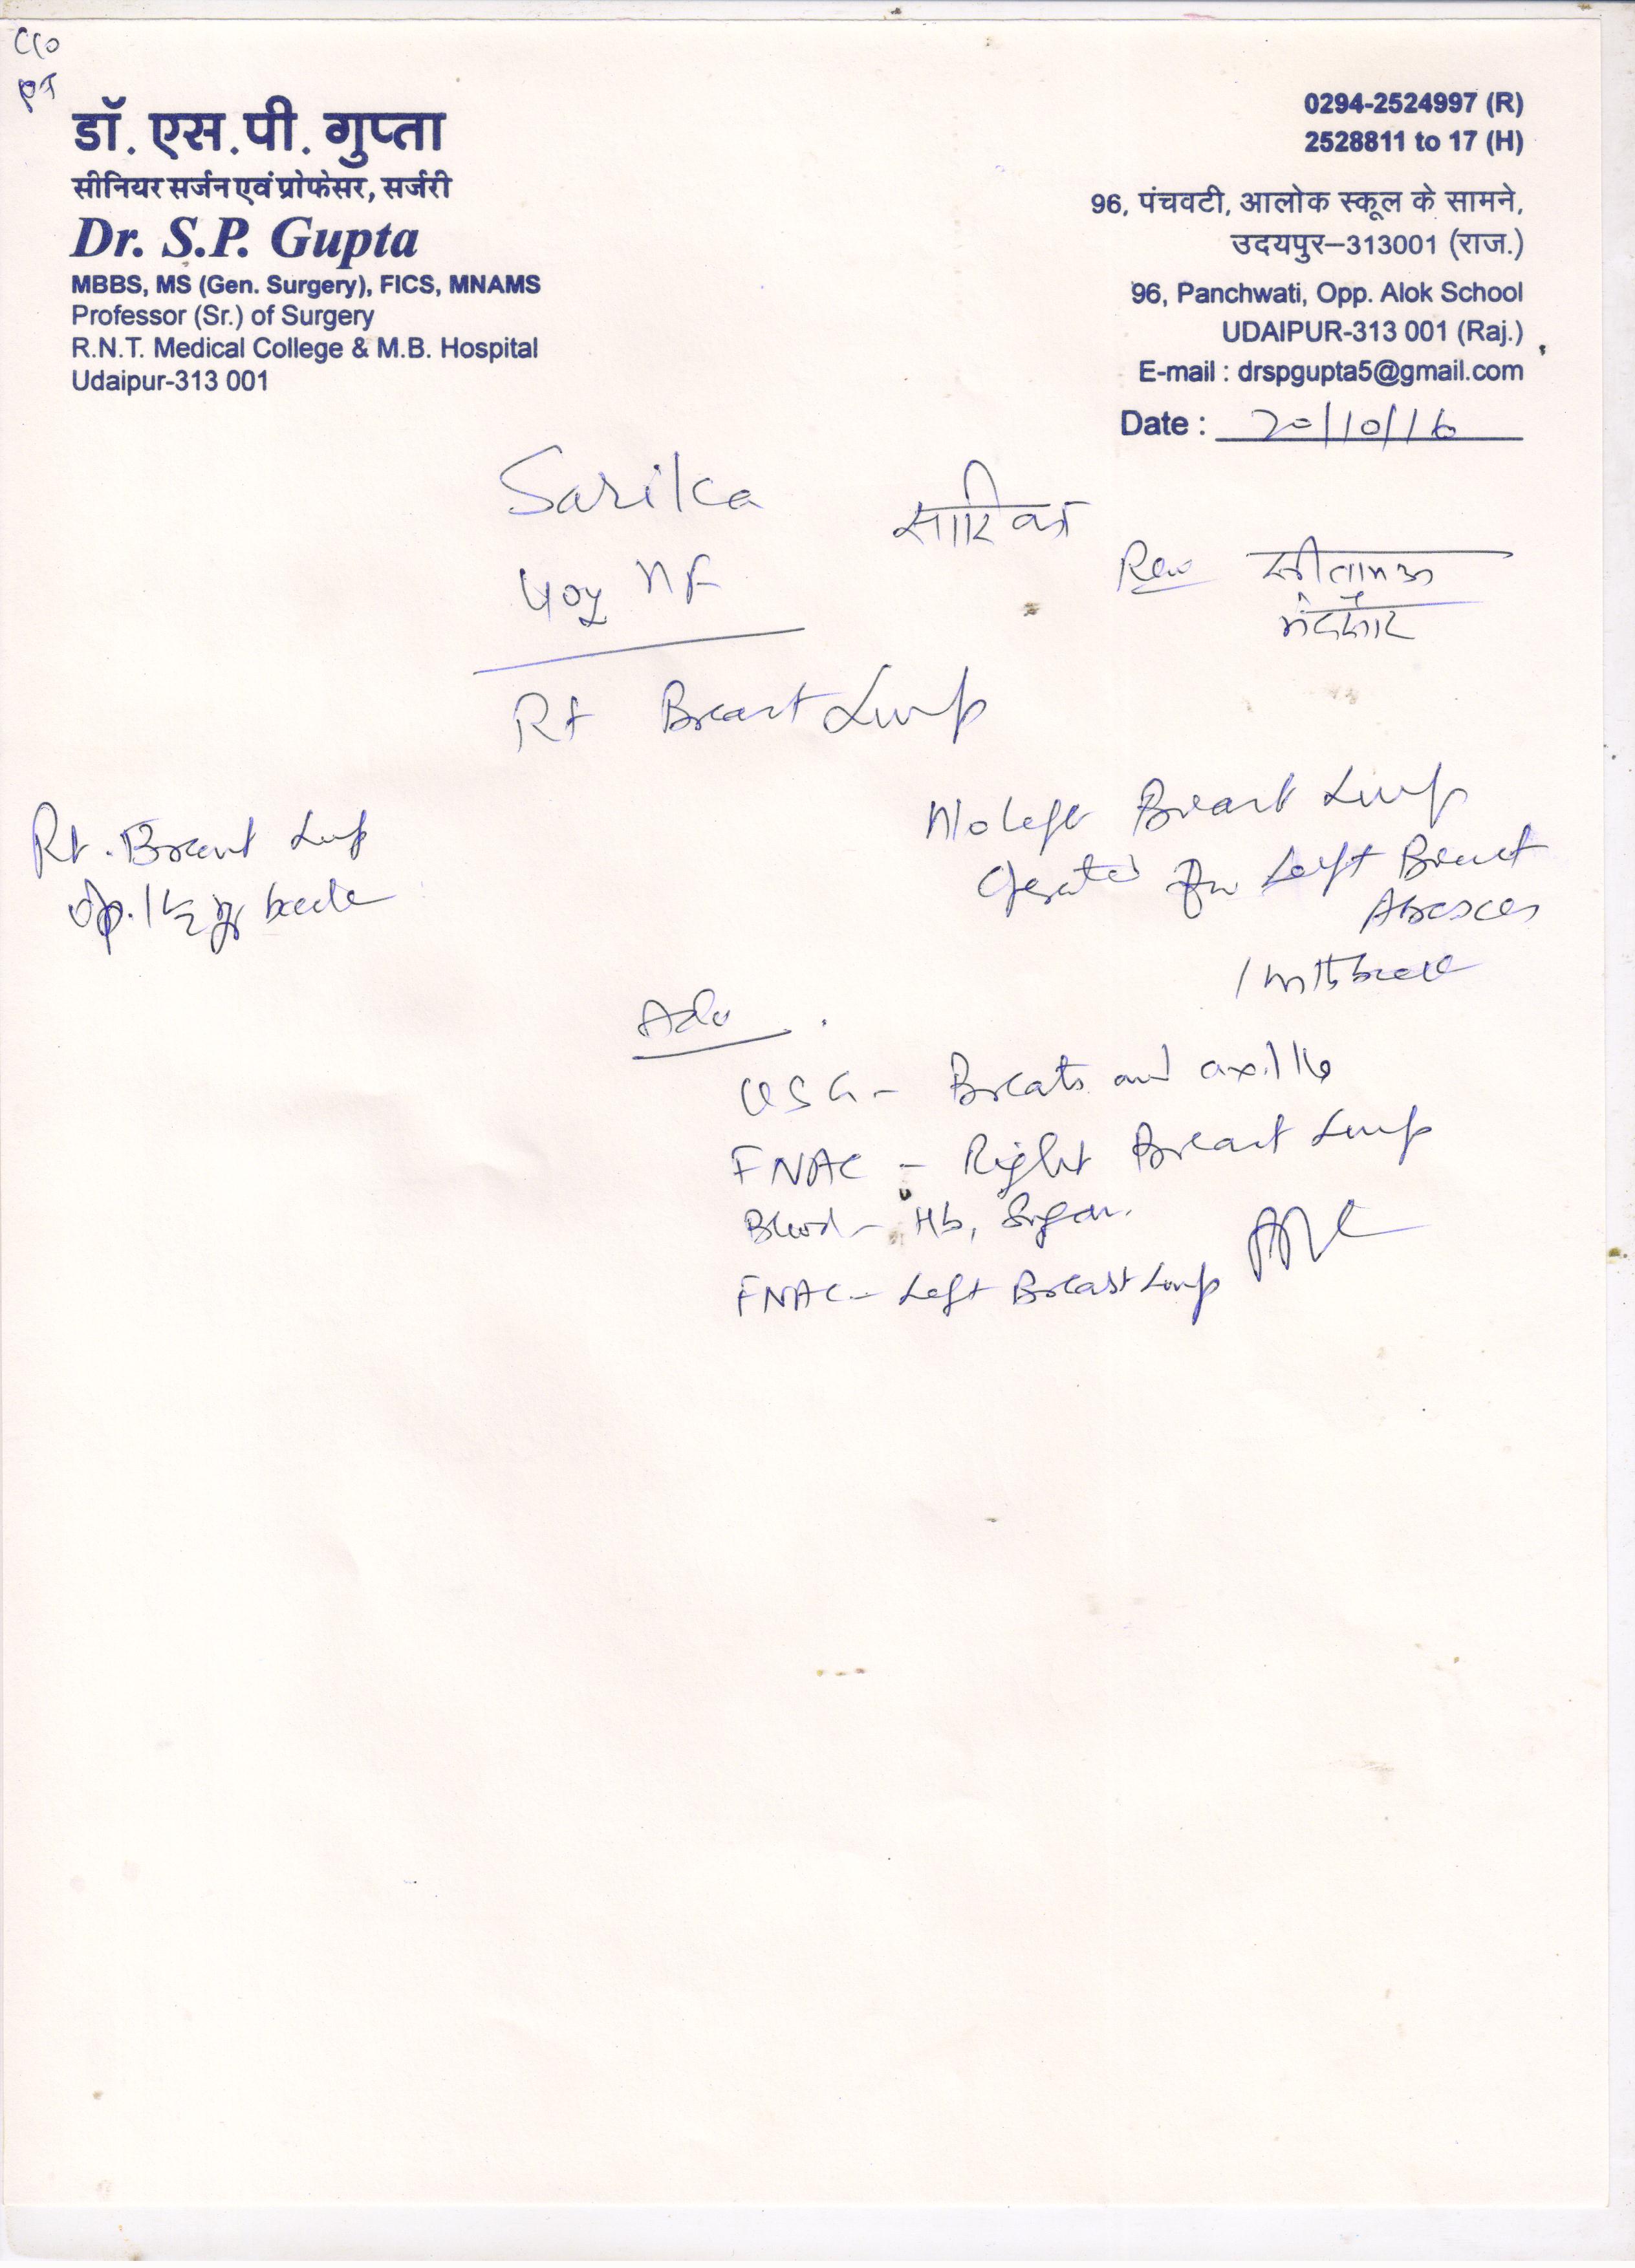 C/o
डॉ. एस.पी. गुप्ता
सीनियर सर्जन एवं प्रोफेसर, सर्जरी
Dr. S.P. Gupta
MBBS, MS (Gen. Surgery), FICS, MNAMS
Professor (Sr.) of Surgery
R.N.T. Medical College & M.B. Hospital
Udaipur-313 001
0294-2524997 (R)
2528811 to 17 (H)
96, पंचवटी, आलोक स्कूल के सामने,
उदयपुर–313001 (राज.)
96, Panchwati, Opp. Alok School
UDAIPUR-313 001 (Raj.)
E-mail : drspgupta5@gmail.com
Date : 20/10/16
Sarika सारिका
40y
सीतामऊ
मंदसौर
Rt Breast Lump
Rt. Breast Lump
op. 1 1/2 yr back
H/o Left Breast Lump
Operated for Left Breast
Abscess
1 mth back
Adv
USG - Breats and axilla
FNAC - Right Breast Lump
Blood - Hb, Sugar.
FNAC - Left Breast Lump